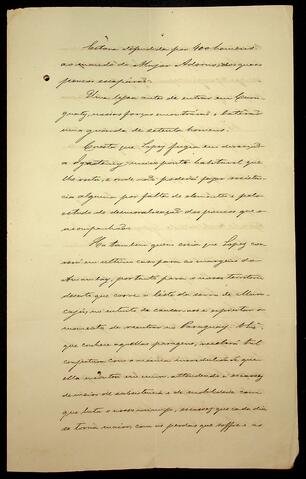 Estava defendida por 400 homens
ao mando do Major Adorno, dos quaes
poucos escaparão.
Uma legoa antes de entrar em Curu-
guaty, nossas forças encontrárão, e baterão
uma guarda de setenta homens.
Consta que Lopez fugia em direcção
a Igatimy, unico ponto habitavel que
lhe resta, e onde não poderá fazer resisten-
cia alguma por falta de elementos e pelo
estado de desmoralisação das poucas que o
acompanhão.
Ha tambem quem creia que Lopez
em ultimo caso para as margens do
Amambay, portanto para o nosso territorio
deserto que corre a Leste da serra de Mara-
cajú, no intuito de cansar-nos e espreitar o
momento de reentrar no Paraguay.
que conhece aquellas paragens,
com a mesma incredulidade que
ella, attendendo a escassez
de meios de subsistencia e de mobilidade com
que luta o nosso inimigo, escassez que cada dia
se torna maior com as perdas que soffre e as